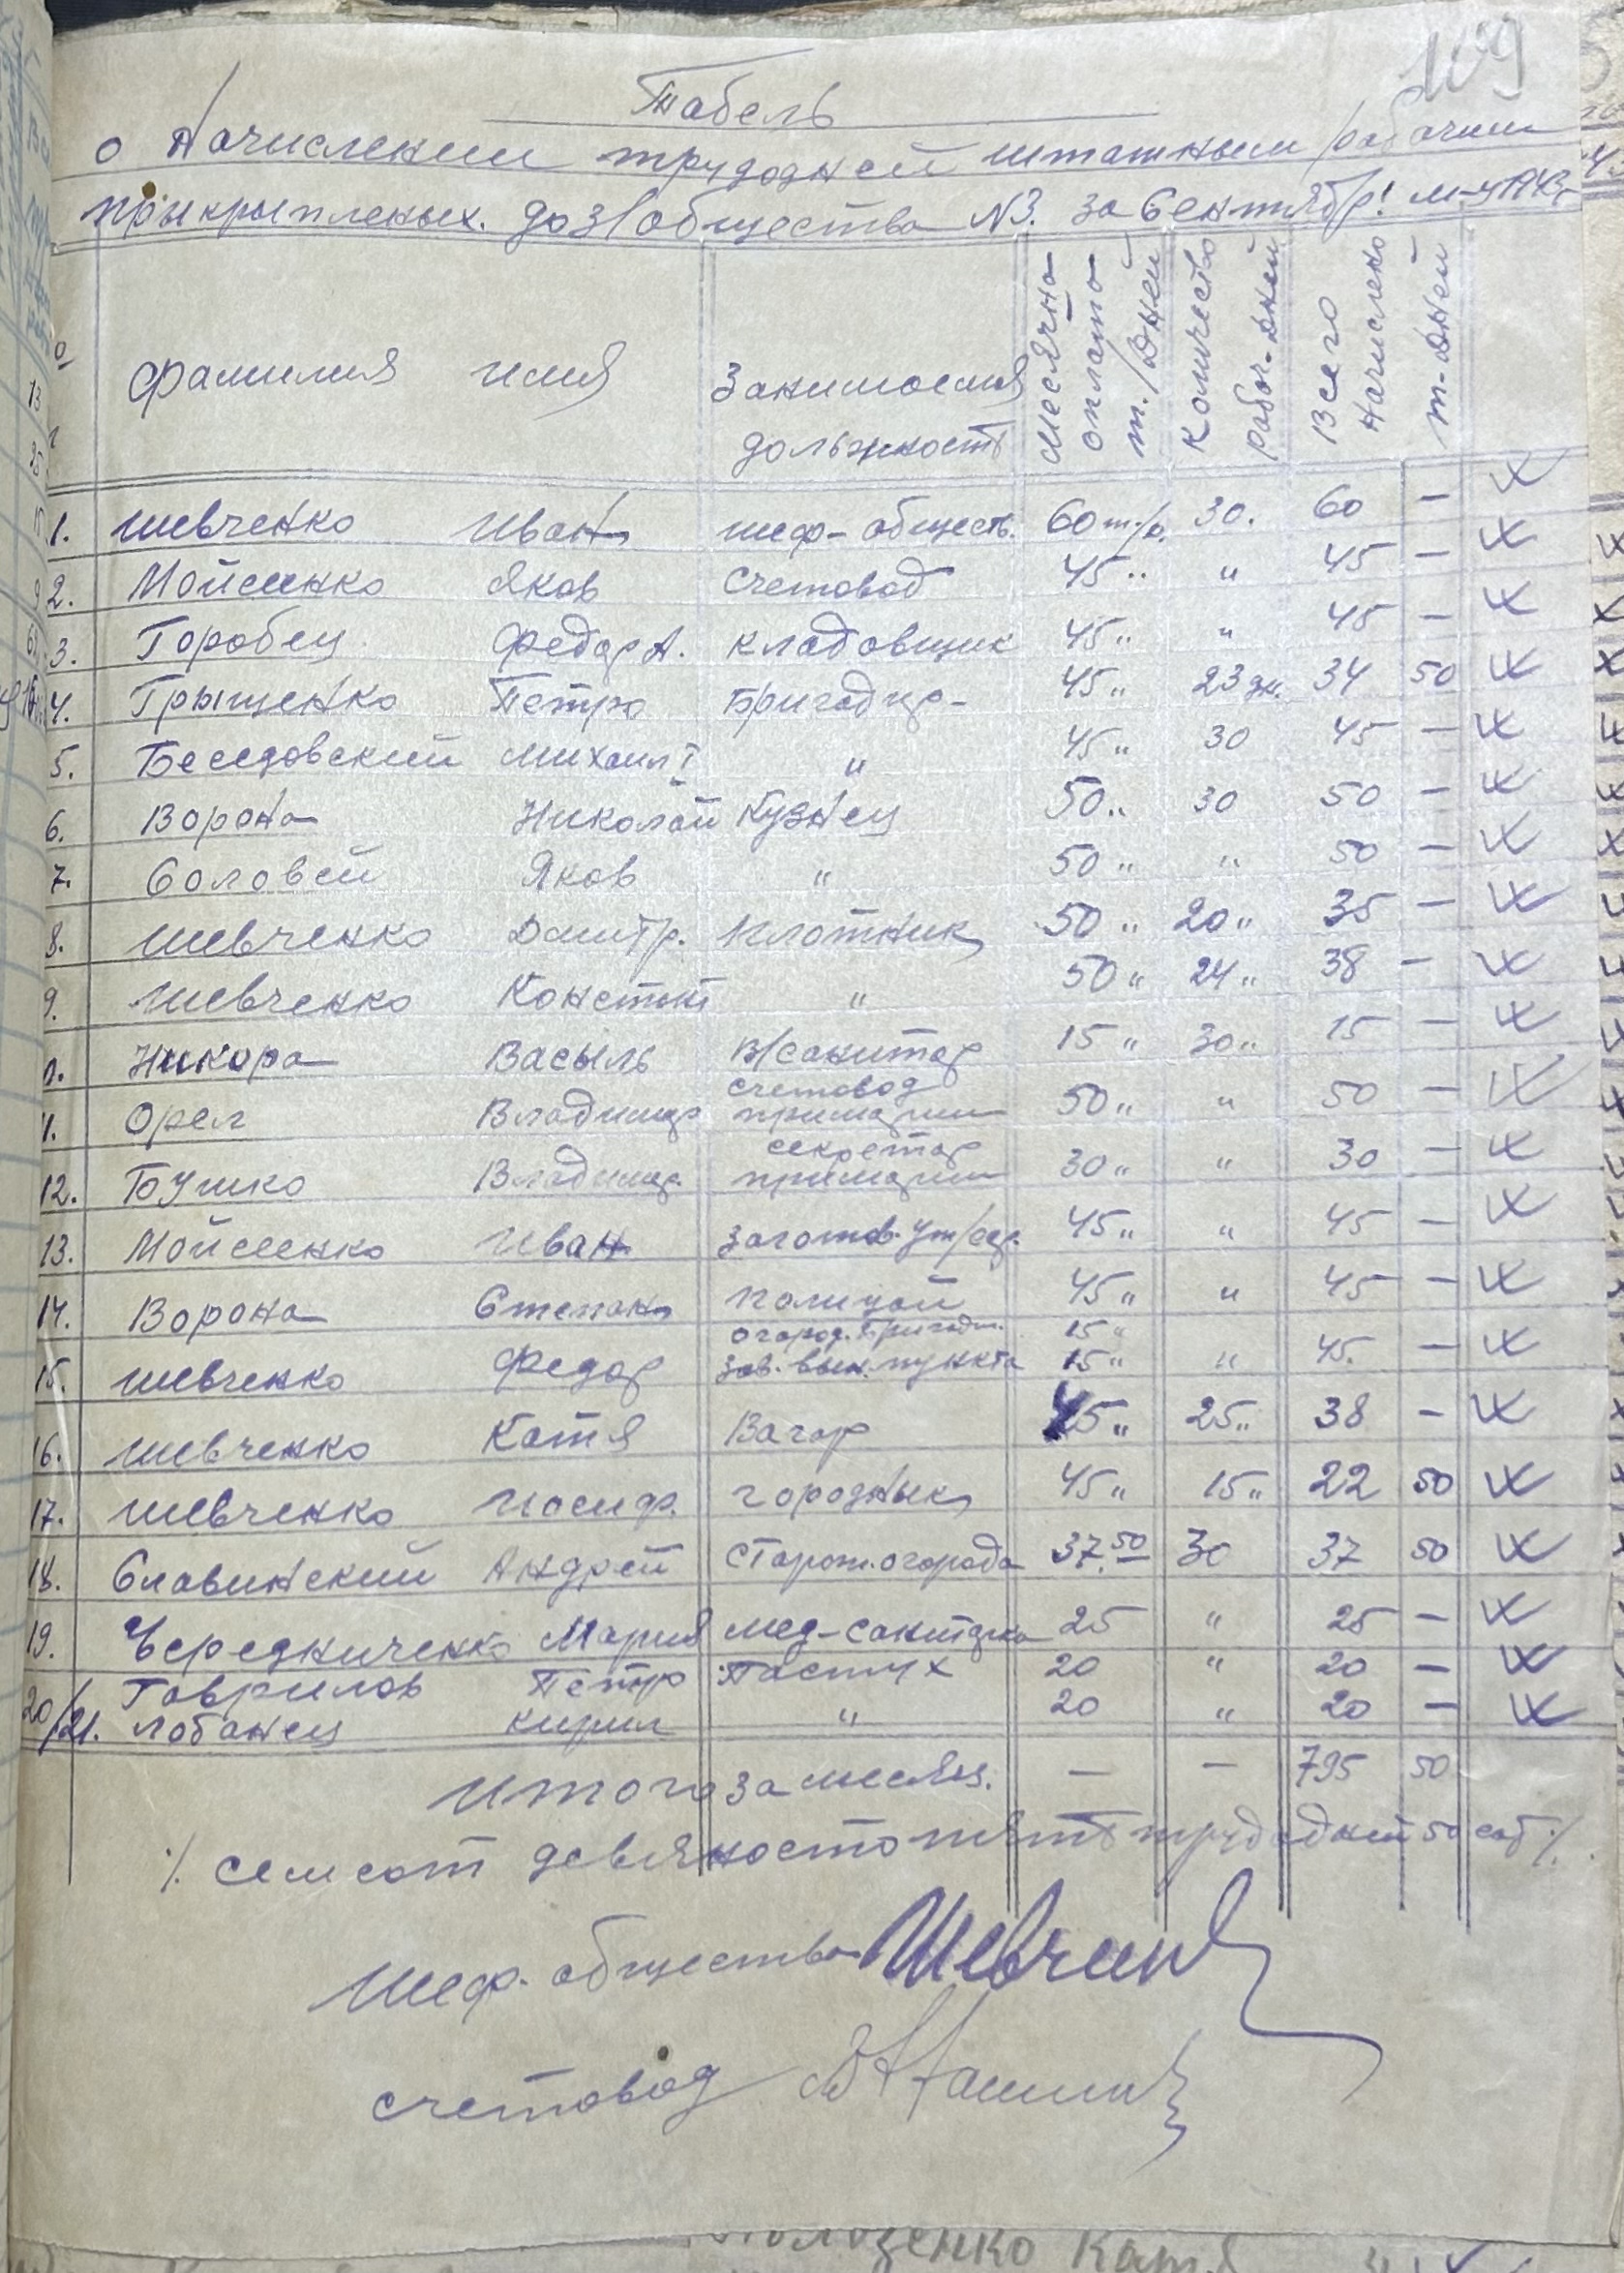 109
Табель
о Начислении трудодней штатным рабочим
прикрыпленых. до 3/общества N3. за Сентябр! м-ц 1943г
Фамилия имя Занимоемая должность Месячна оплата т./Дней Количество рабоч-дней Всего Начислено т-Дней
1. Шевченко Иван шеф-обществ. 60 т./д. 30. 60 —
2. Мойсеенко Яков Счетовод 45 " " 45 —
3. Горобец Федор А. Кладовщик 45 " " 45 —
4. Грыщенко Петро Бригадир- 45 " 23 дн. 34 50
5. Беседовский Михаил Г " 45 " 30 45 —
6. Ворона Николай Кузнец 50 " 30 50 —
7. Соловей Яков " 50 " " 50 —
8. Шевченко Дмитр. Плотник 50 " 20 " 35 —
9. Шевченко Констант " 50 " 24 " 38 —
0. Никора Васыль В/санитар 15 " 30 " 15 —
1. Орел Владимир счетовод примарии 50 " " 50 —
12. Бушко Владимир. секретар примарии 30 " " 30 —
13. Мойсеенко Иван Заготов. 45 " " 45 —
14. Ворона Степан Полицай 45 " " 45 —
15. Шевченко Федор огород. Бригади. 15 " зав. вын. пункта 15 " " 45. —
16. Шевченко Катя Вагар 45 " 25 " 38 —
17. Шевченко Иосиф. городнык 45 " 15 " 22 50
18. Славинский Андрей Сторож. огорода 37.50 30 37 50
19. Чередниченко Мария мед-санитарка 25 " 25 —
20 Гаврилов Петр Пастух 20 " 20 —
/21. Лобанец Кирил " 20 " 20 —
Итого за месяц. — — 795 50
·/. семсот девяносто пять трудодней 50 сот ·/.
Шеф. общества Шевченк
счетовод
Кат